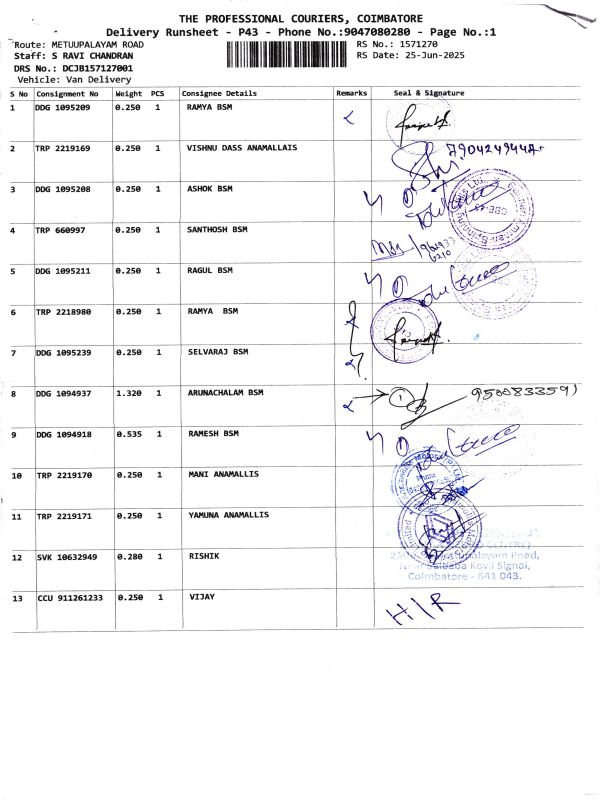 THE PROFESSIONAL COURIERS, COIMBATORE
Delivery Runsheet - P43 - Phone No.:9047080280 - Page No.:1
Route: METUUPALAYAM ROAD
RS No.: 1571270
Staff: S RAVI CHANDRAN
RS Date: 25-Jun-2025
DRS No.: DCJB157127001
Vehicle: Van Delivery
S No Consignment No Weight PCS Consignee Details Remarks Seal & Signature
1 DDG 1095209 0.250 1 RAMYA BSM
2 TRP 2219169 0.250 1 VISHNU DASS ANAMALLAIS
3 DDG 1095208 0.250 1 ASHOK BSM
4 TRP 660997 0.250 1 SANTHOSH BSM
5 DDG 1095211 0.250 1 RAGUL BSM
6 TRP 2218980 0.250 1 RAMYA BSM
7 DDG 1095239 0.250 1 SELVARAJ BSM
8 DDG 1094937 1.320 1 ARUNACHALAM BSM 1 9500833591
9 DDG 1094918 0.535 1 RAMESH BSM
10 TRP 2219170 0.250 1 MANI ANAMALLIS
11 TRP 2219171 0.250 1 YAMUNA ANAMALLIS
12 SVK 10632949 0.280 1 RISHIK
Kovil Signal,
Coimbatore - 641 043.
13 CCU 911261233 0.250 1 VIJAY H/R